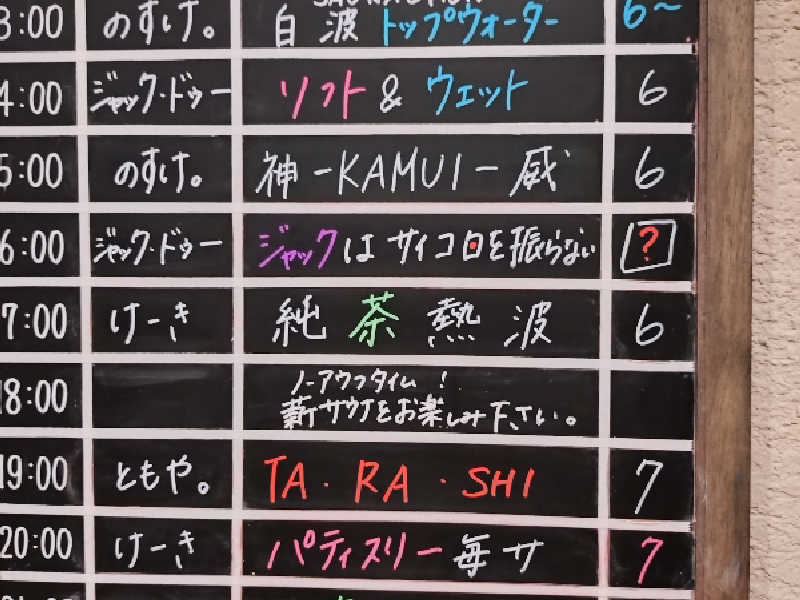 3:00 のすけ。 白波 トップウォーター 6~
4:00 ジャック・ドゥー ソフト & ウェット 6
5:00 のすけ。 神-KAMUI-威 6
6:00 ジャック・ドゥー ジャックはサイコロを振らない ?
7:00 けーき 純茶熱波 6
18:00 ノーアウフタイム!
薪サウナをお楽しみ下さい。
19:00 ともや。 TA・RA・SHI 7
20:00 けーき パティスリー毎サ 7